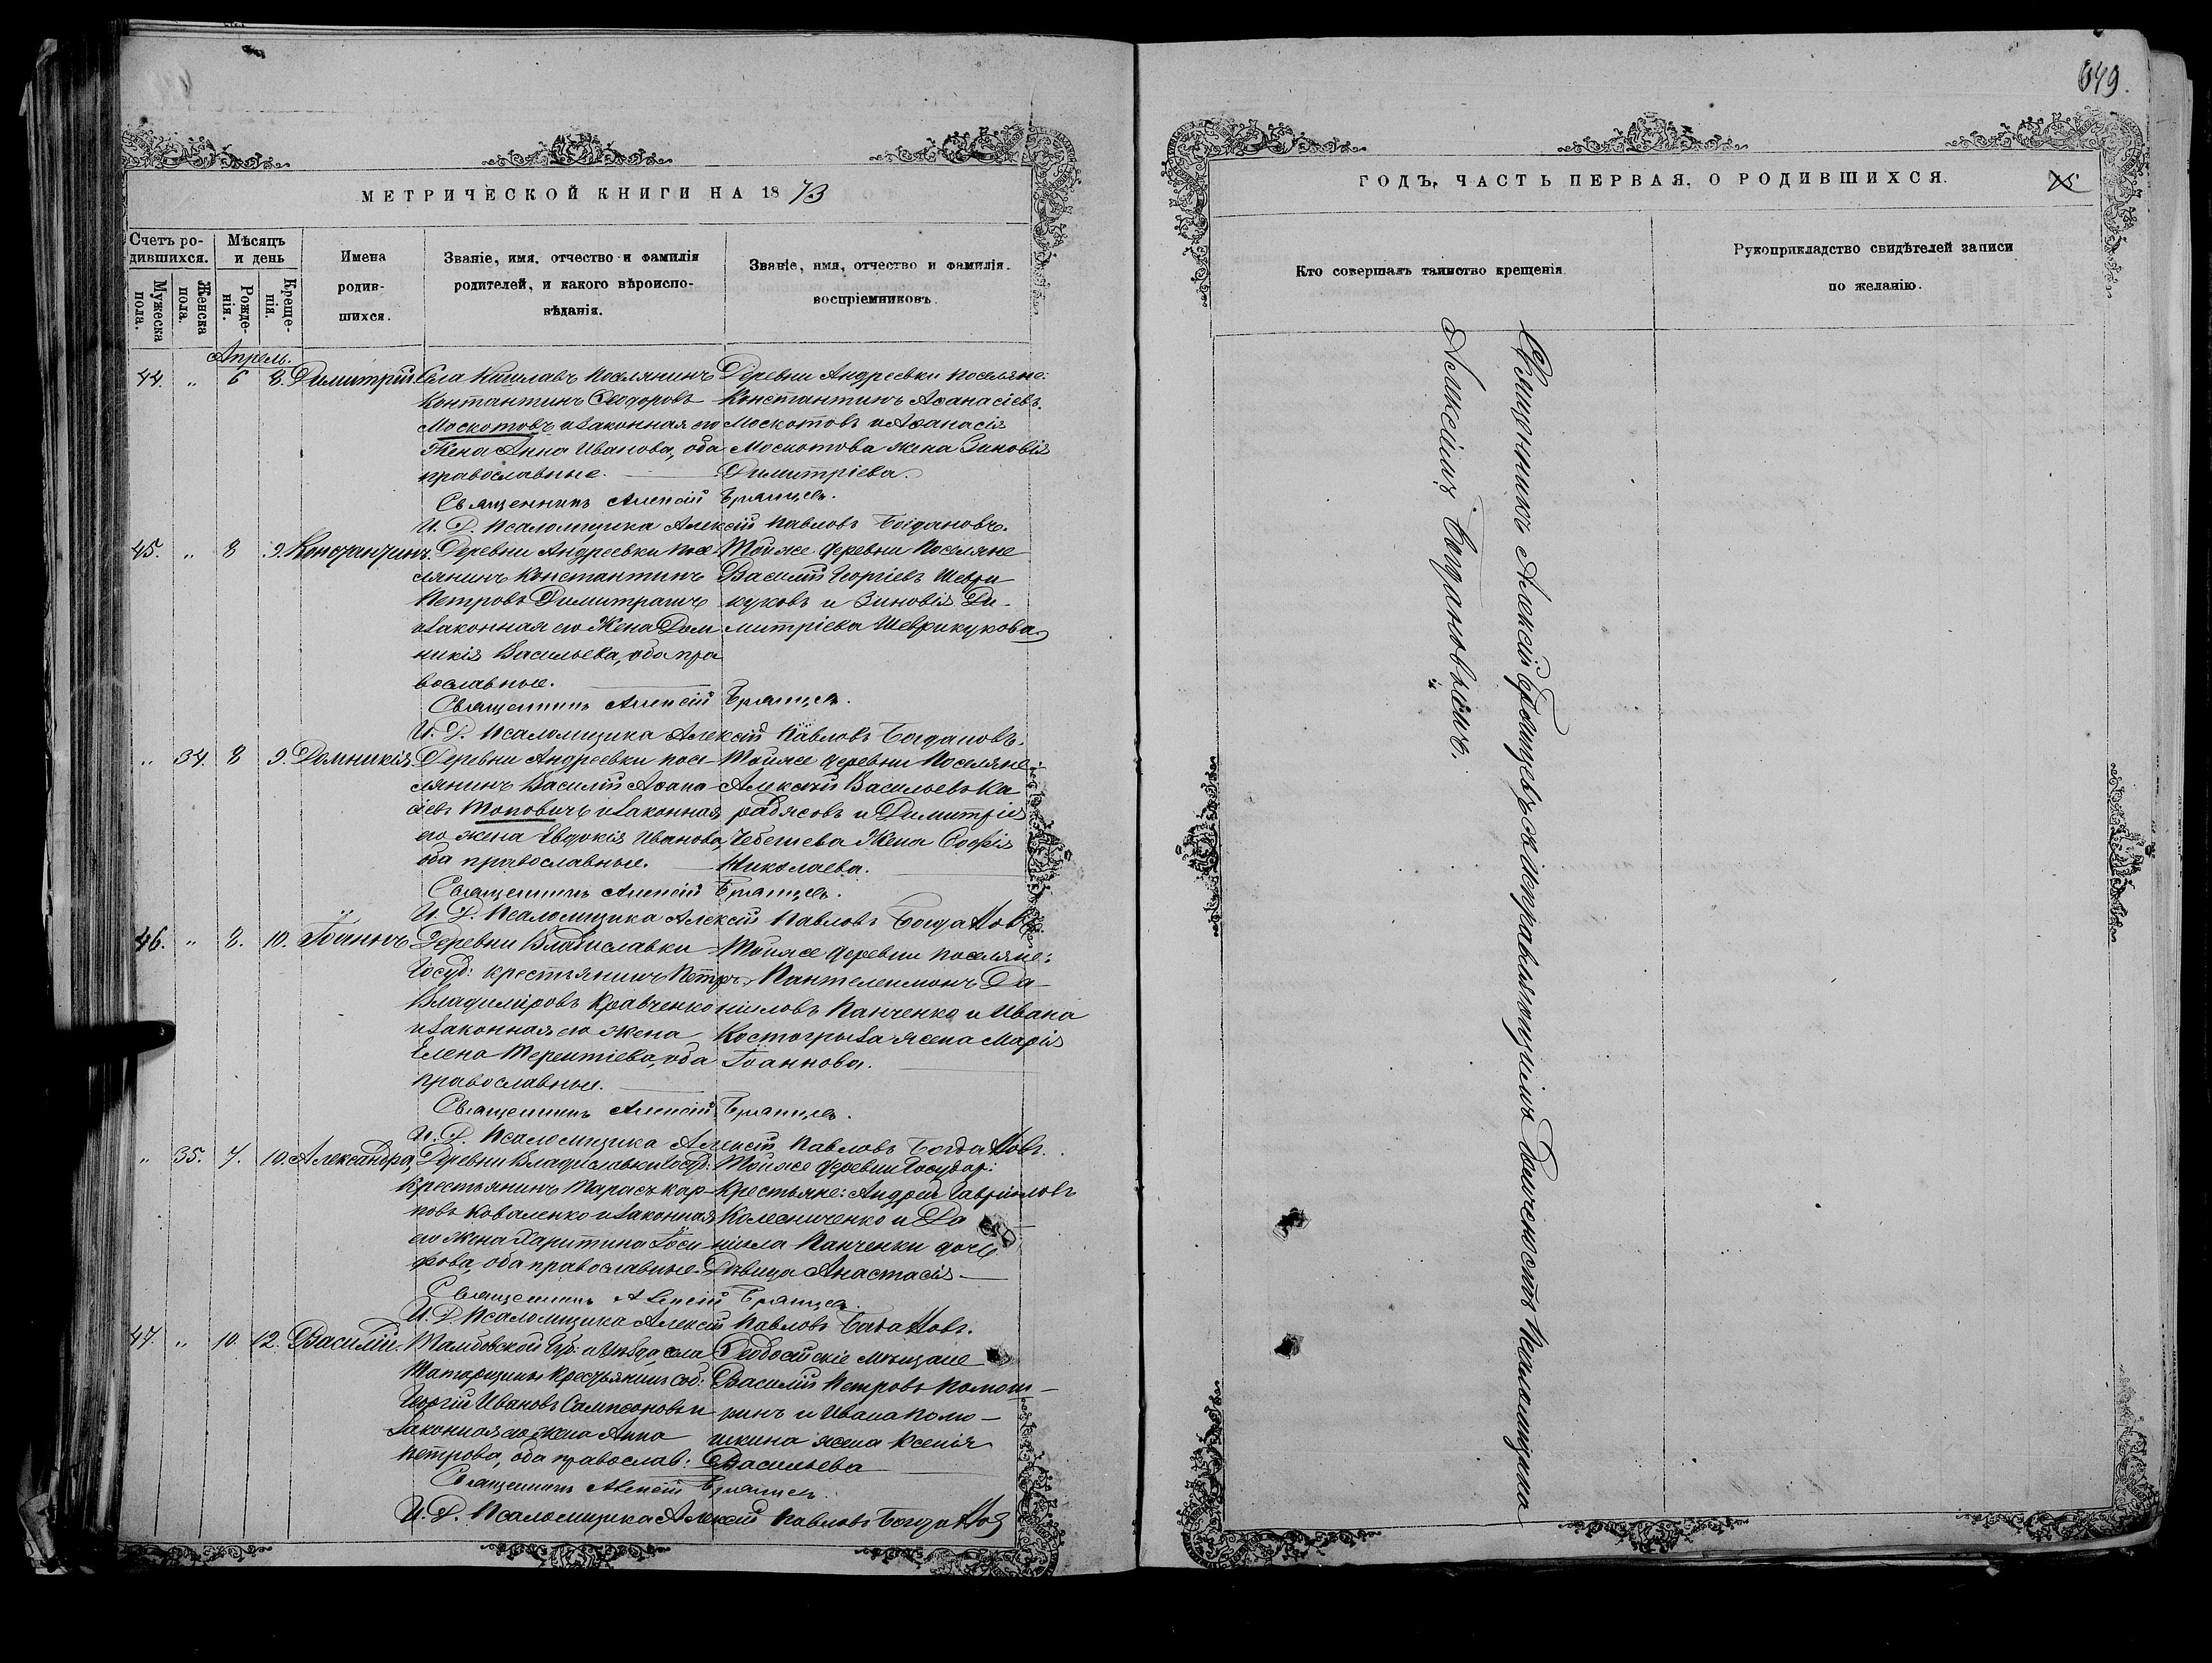 649.
МЕТРИЧЕСКОЙ КНИГИ НА 1873
Счетъ ро-
дившихся.
Мужеска пола.
Женска пола.
Мѣсяцъ
и день
Рожде-
нія.
Креще-
нія.
Имена
родив-
шихся.
Званіе, имя, отчество и фамилія
родителей, и какого вѣроиспо-
вѣданія.
Званіе, имя, отчество и фамилія.
воспріемниковъ.
Апрель.
44. „ 6 8. Димитрій.
Села Кишлавъ поселянинъ
Контантинъ Ѳеодоровъ
Москотовъ и законная его
жена Анна Иванова, оба
православные.
Деревни Андреевки поселяне:
Константинъ Аѳанасіевъ
Москотовъ и Аѳанасія
Москотова жена Зиновія
Димитріева.
Священникъ Алексій
И. Д. Псаломщика Алексій Павловъ Богдановъ.
45. „ 8 9. Константинъ.
Деревни Андреевки посе-
лянинъ Константинъ
Петровъ
и законная его жена Дом
никія Васильева, оба пра
вославные.
Тойже деревни поселяне
Василій Георгіевъ Шеври
куковъ и Зиновія Ди-
митріева Шеврикукова
Священникъ Алексій
И. Д. Псаломщика Алексій Павловъ Богдановъ.
„ 34. 8 9. Домникія.
Деревни Андреевки посе-
лянинъ Василій Аѳана-
сіевъ Топовичъ и законная
его жена Евдокія Иванова,
оба православные.
Тойже деревни поселяне:
Алексѣй Васильевъ Ка
радясовъ и Димитрія
Чебешева жена Софія
Николаева.
Священникъ Алексій
И. Д. Псаломщика Алексій Павловъ Богдановъ
46. „ 8. 10. Іоаннъ
Деревни Владиславки
Госуд: крестьянинъ Петръ
Владиміровъ Кравченко
и законная его жена
Елена Терентіева, оба
православные.
Тойже деревни поселяне:
Пантелеимонъ Да-
ніиловъ Панченко и Ивана
Костогрыза жена Марія
Іоаннова.
Священникъ Алексій
И. Д. Псаломщика Алексій Павловъ Богдановъ.
„ 35. 7. 10. Александра,
Деревни Владиславки Госуд:
крестьянинъ Тарасъ Кар-
повъ Коваленко и законная
его жена Харитина Іоси
фова, оба православные.
Тойже деревни Государ:
крестьяне: Андрей Гавріиловъ
Колесниченко и Да
ніила Панченки дочь
Дѣвица Анастасія
Священникъ Алексій
И. Д. Псаломщика Алексій Павловъ Богдановъ.
47. „ 10. 12. Василій.
Тамбовской Губ: и Уѣзда села
крестьянинъ соб:
Георгій Ивановъ Сампсоновъ и
законная его жена Анна
Петрова, оба православ:
Ѳеодосійскіе мѣщане
Василій Петровъ
и Ивана
жена Ксенія
Васильева
Священникъ Алексій
И. Д. Псаломщика Алексій Павловъ Богдановъ
ГОДЪ, ЧАСТЬ ПЕРВАЯ, О РОДИВШИХСЯ.
Кто совершалъ таинство крещенія.
Рукоприкладство свидѣтелей записи
по желанію.
Священникъ Алексій съ исправляющимъ должность псаломщика
Алексіемъ Богдановымъ.